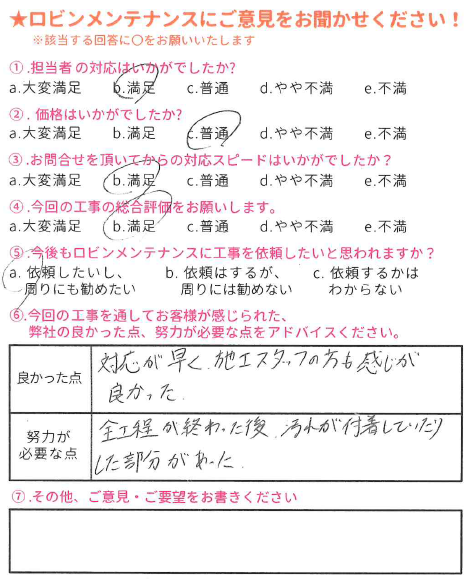 ★ロビンメンテナンスにご意見をお聞かせください！
※該当する回答に〇をお願いいたします
①.担当者の対応はいかがでしたか?
a.大変満足 b.満足 c.普通 d.やや不満 e.不満
②. 価格はいかがでしたか?
a.大変満足 b.満足 c.普通 d.やや不満 e.不満
③.お問合せを頂いてからの対応スピードはいかがでしたか？
a.大変満足 b.満足 c.普通 d.やや不満 e.不満
④.今回の工事の総合評価をお願いします。
a.大変満足 b.満足 c.普通 d.やや不満 e.不満
⑤.今後もロビンメンテナンスに工事を依頼したいと思われますか？
a. 依頼したいし、 b. 依頼はするが、 c. 依頼するかは
周りにも勧めたい 周りには勧めない わからない
⑥.今回の工事を通してお客様が感じられた、
弊社の良かった点、努力が必要な点をアドバイスください。
良かった点
対応が早く、施工スタッフの方も感じが
良かった.
努力が
必要な点
全工程が終わった後、汚れが付着していたり
した部分があった.
⑦.その他、ご意見・ご要望をお書きください